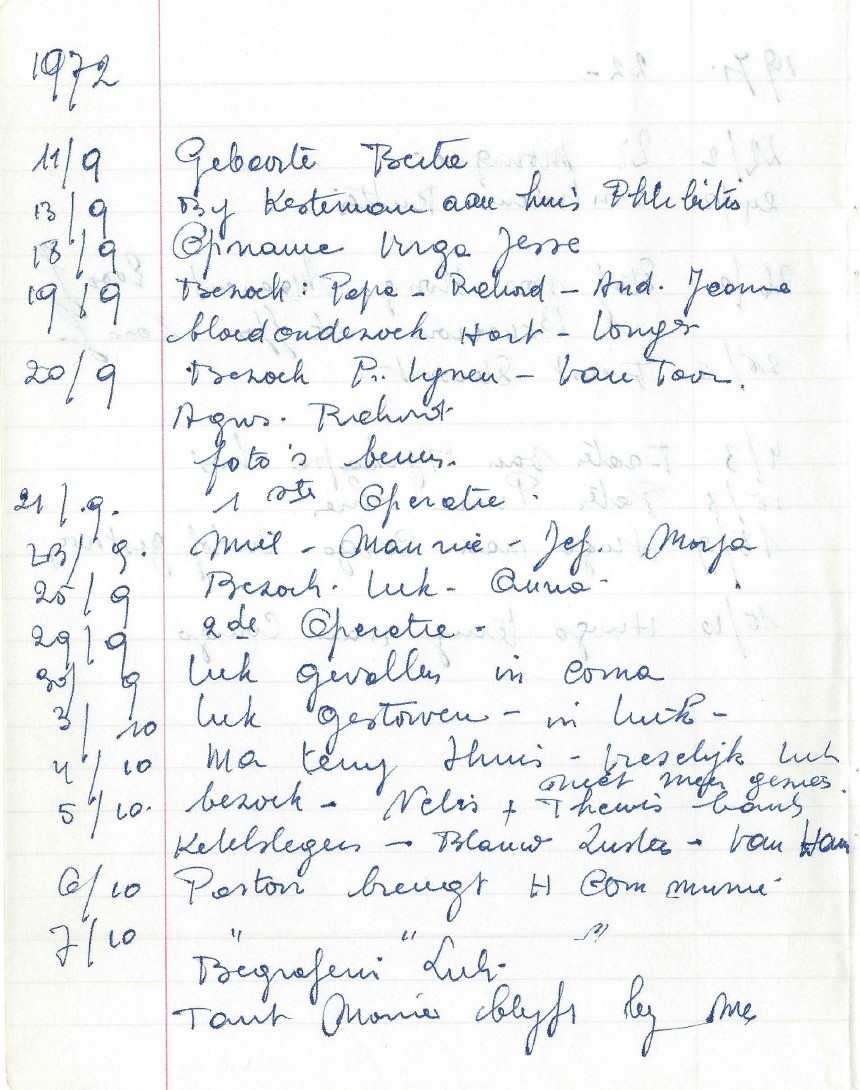 1972
11/9 Geboorte Bertie
13/9 By Kesteman aan huis Phlebitis
18/9 Opname Virga Jesse
19/9 Bezoek: Papa - Richard - And. Jeanne
bloedonderzoek Hart - Longen
20/9 Bezoek Pr. Lynen - Van Toor.
Agnes. Richard
foto's
21/.9. 1 ste Operatie.
23/9. Emiel - Maurice - Jef.
25/9 Bezoek. Luk - Anna -
29/9 2de Operatie -
30/9 Luk gevallen in coma
3/10 Luk gestorven - in Luik -
4/10 Ma terug thuis - Vreselijk Luk
niet meer
5/10. bezoek - Nelis + Thewis
Ketelslegers - Blauw Zuster - Van Ham
6/10 Pastoor brengt H Communie
7/10 " " "
Begrafenis Luk.
Tant Monie blyft by me